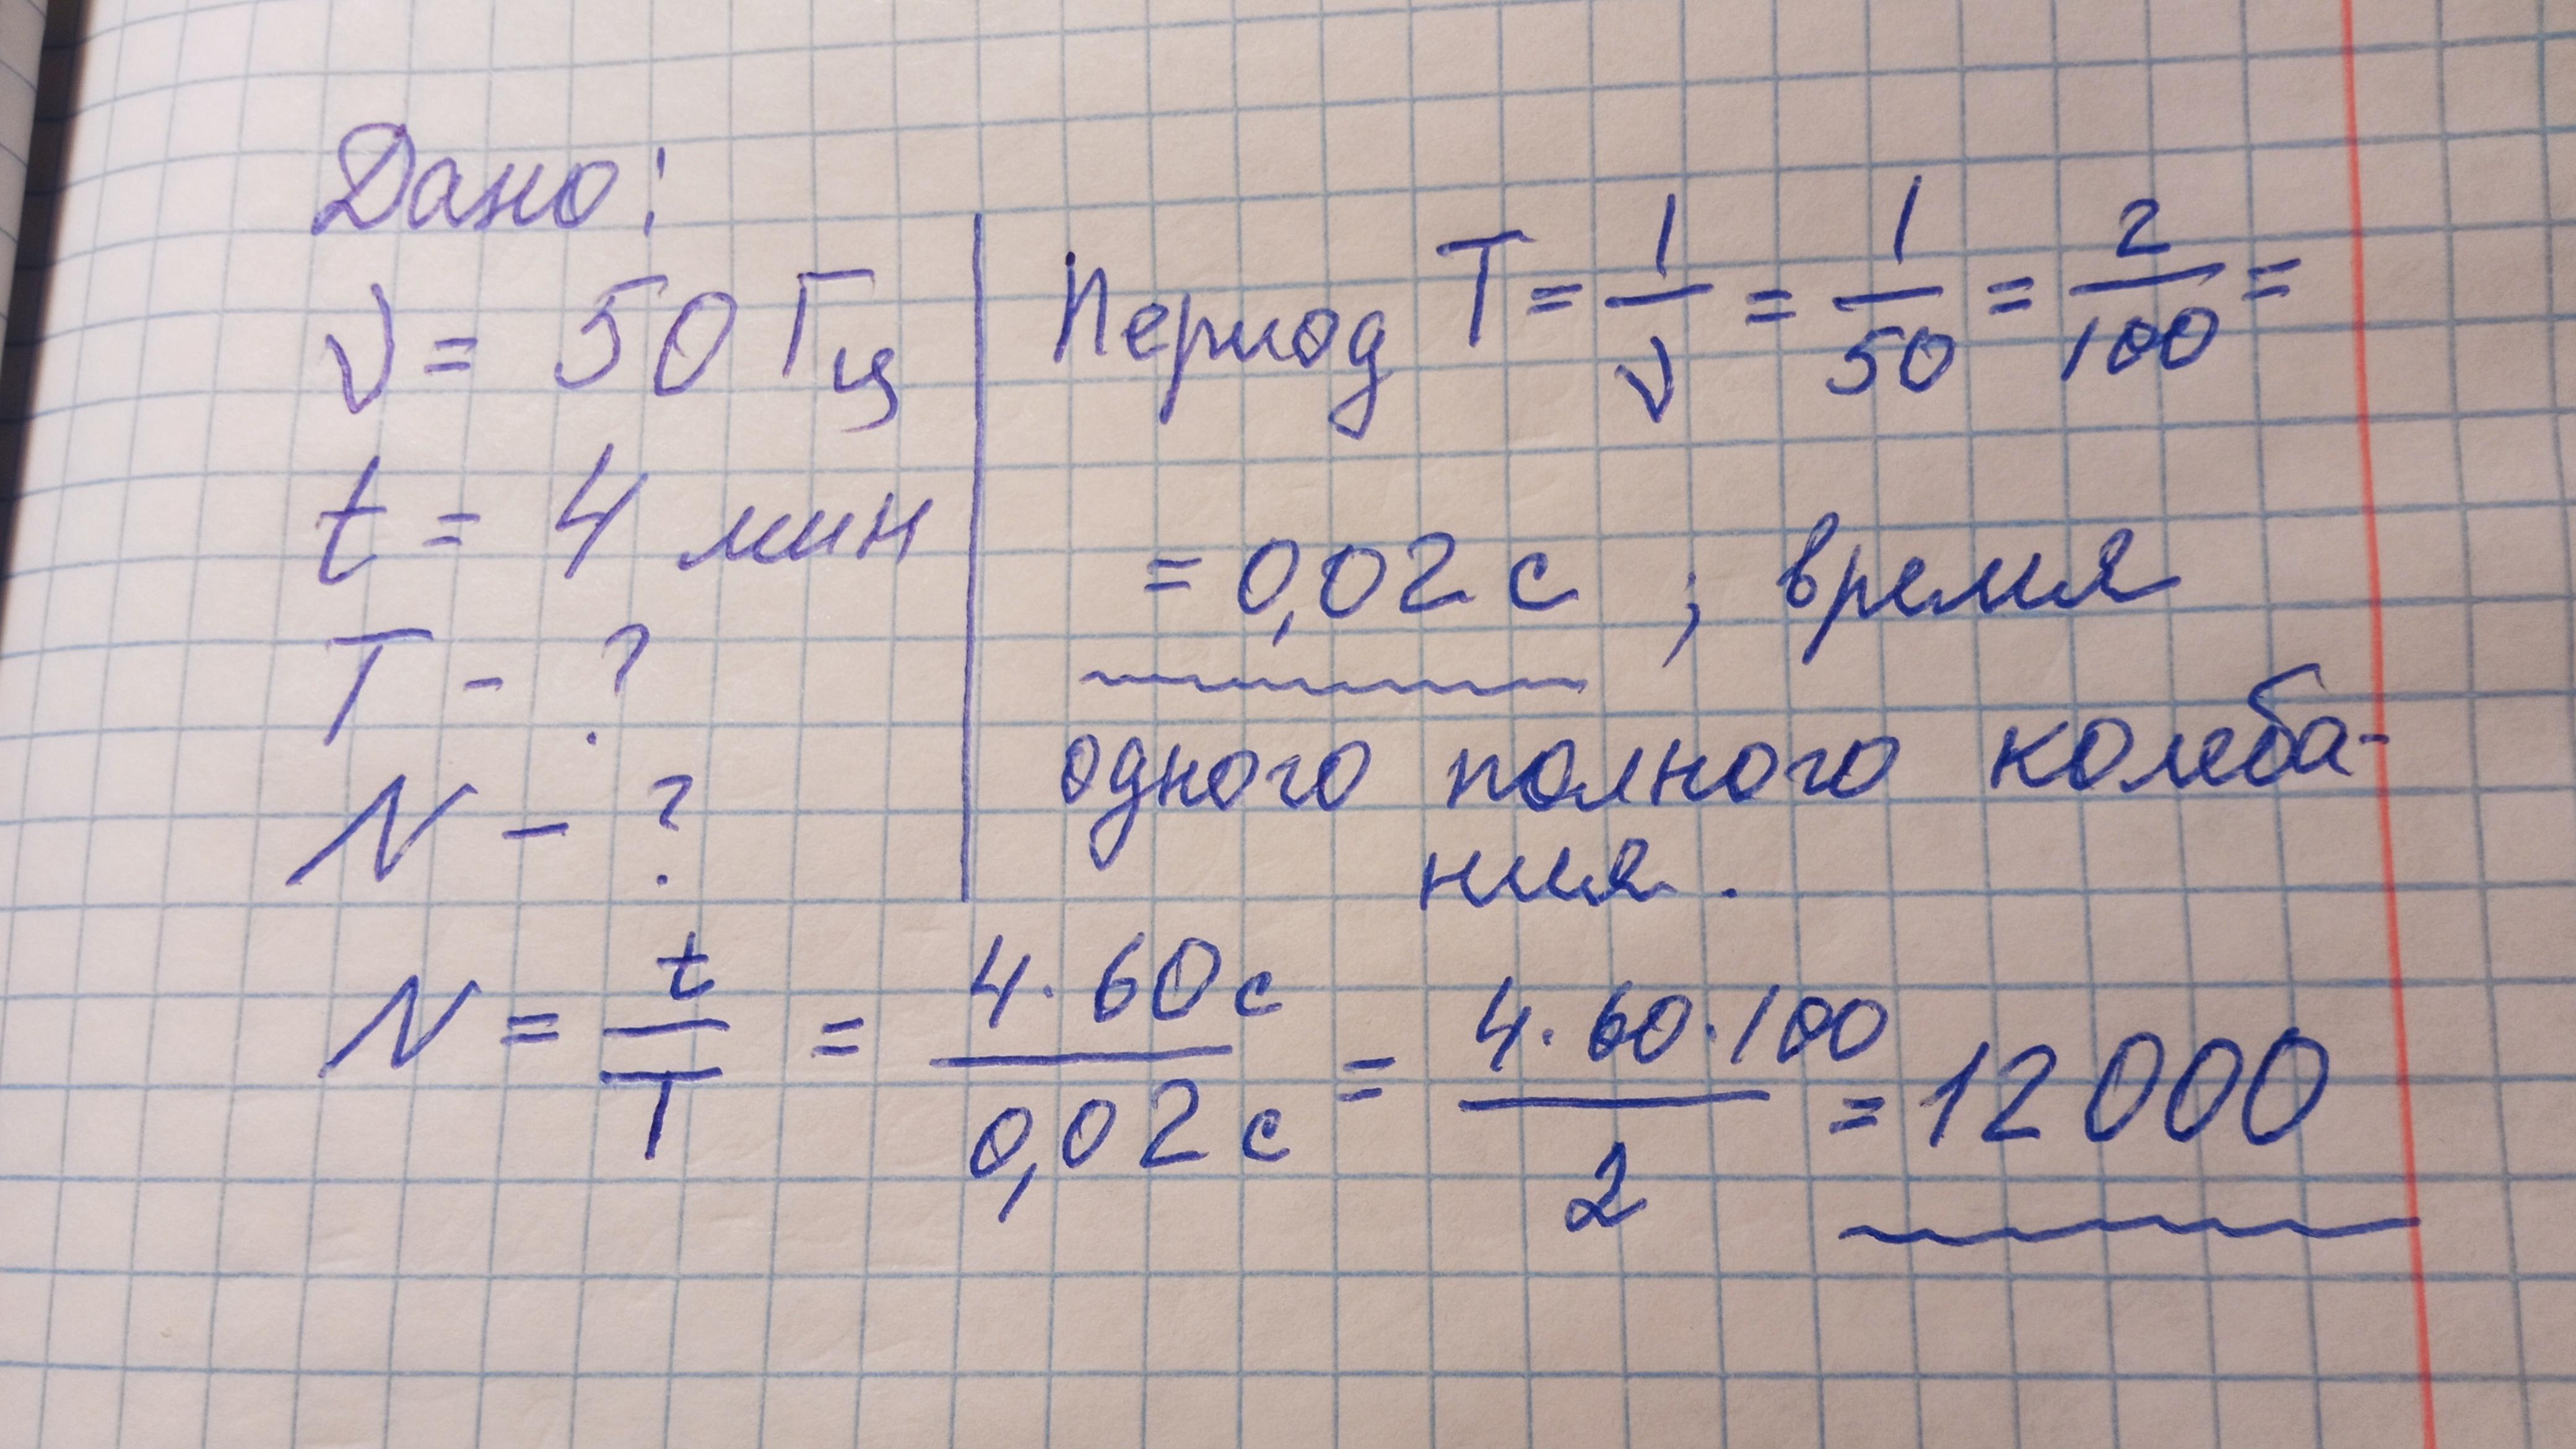 Дано:
ν = 50 Гц
t = 4 мин
T - ?
N - ?
Период T = 1/ν = 1/50 = 2/100 =
= 0,02 с ; время
одного полного колеба-
ния.
N = t/T = 4·60с/0,02с = 4·60·100/2 = 12000